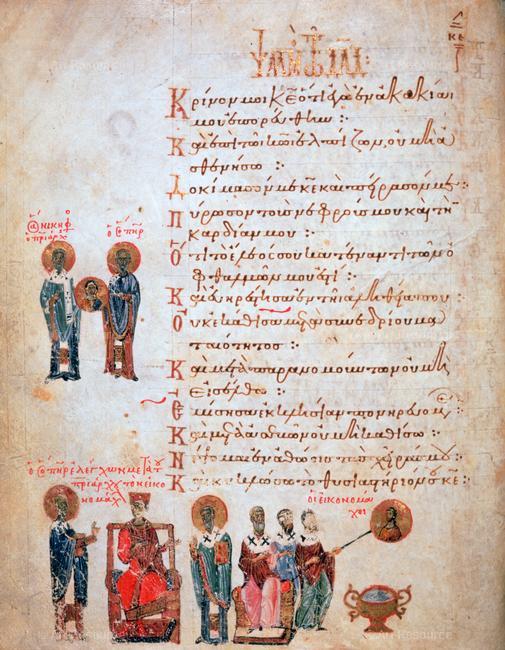 Κρίνον μοι κ̅ε̅ ὅτι ἐγὼ ἐν ἀκακίαι
μου ἐπορεύθην :·
Καὶ ἐπὶ τῶι κ̅ω̅ι ἐλπίζων, οὐ μὴ ἀ
σθενήσω :·
Δοκίμασόν με κ̅ε̅ καὶ πείρασόν με :·
Πύρωσον τοὺς νεφρούς μου καὶ τὴν
καρδίαν μου :·
Ὅτι τὸ ἔλεός σου κατέναντι τῶν ὀ
φθαλμῶν μου ἐστί :·
Καὶ εὐηρέστησα ἐν τῆι ἀληθείαι σου :·
Οὐκ ἐκάθισα μετὰ συνεδρίου μα
ταιότητος :·
Καὶ μετὰ παρανομούντων οὐ μὴ
εἰσέλθω :·
Ἐμίσησα ἐκκλησίαν πονηρευομ :·
Καὶ μετὰ ἀσεβῶν οὐ μὴ καθίσω :·
Νίψομαι ἐν ἀθώοις τὰς χεῖράς μου :·
Καὶ κυκλώσω τὸ θυσιαστήριόν σου κ̅ε̅ :·
ὁ ἅ νικηφ
ὁ π̅ριάρχ
ὁ ὅ π̅ηρ
ὁ ὅ π̅ηρ ἐλέγχων μετὰ τ
π̅ριάρχ τὸν εἰκο
νομάχ
οἱ εἰκονομά
χοι